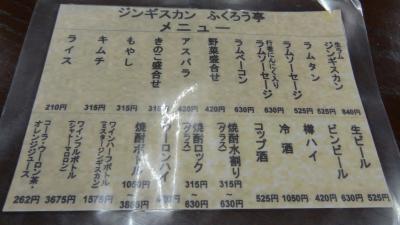 ジンギスカン ふくろう亭
メニュー
生ラムジンギスカン 840円
ラムタン 525円
ラムソーセージ 525円
行者にんにく入りラムソーセージ 630円
ラムベーコン 630円
野菜盛合せ 420円
アスパラ 420円
きのこ盛合せ 315円
もやし 315円
キムチ 315円
ライス 210円
生ビール 525円
ビンビール 630円
樽ハイ 420円
冷酒 1050円
コップ酒 525円
焼酎水割り(グラス) 315円~630円
焼酎ロック(グラス) 315円~630円
ウーロンハイ
焼酎ボトル 1050円~
ワインハーフボトル 1575円
ワインフルボトル 3675円
コーラ・ウーロン茶・オレンジジュース 262円